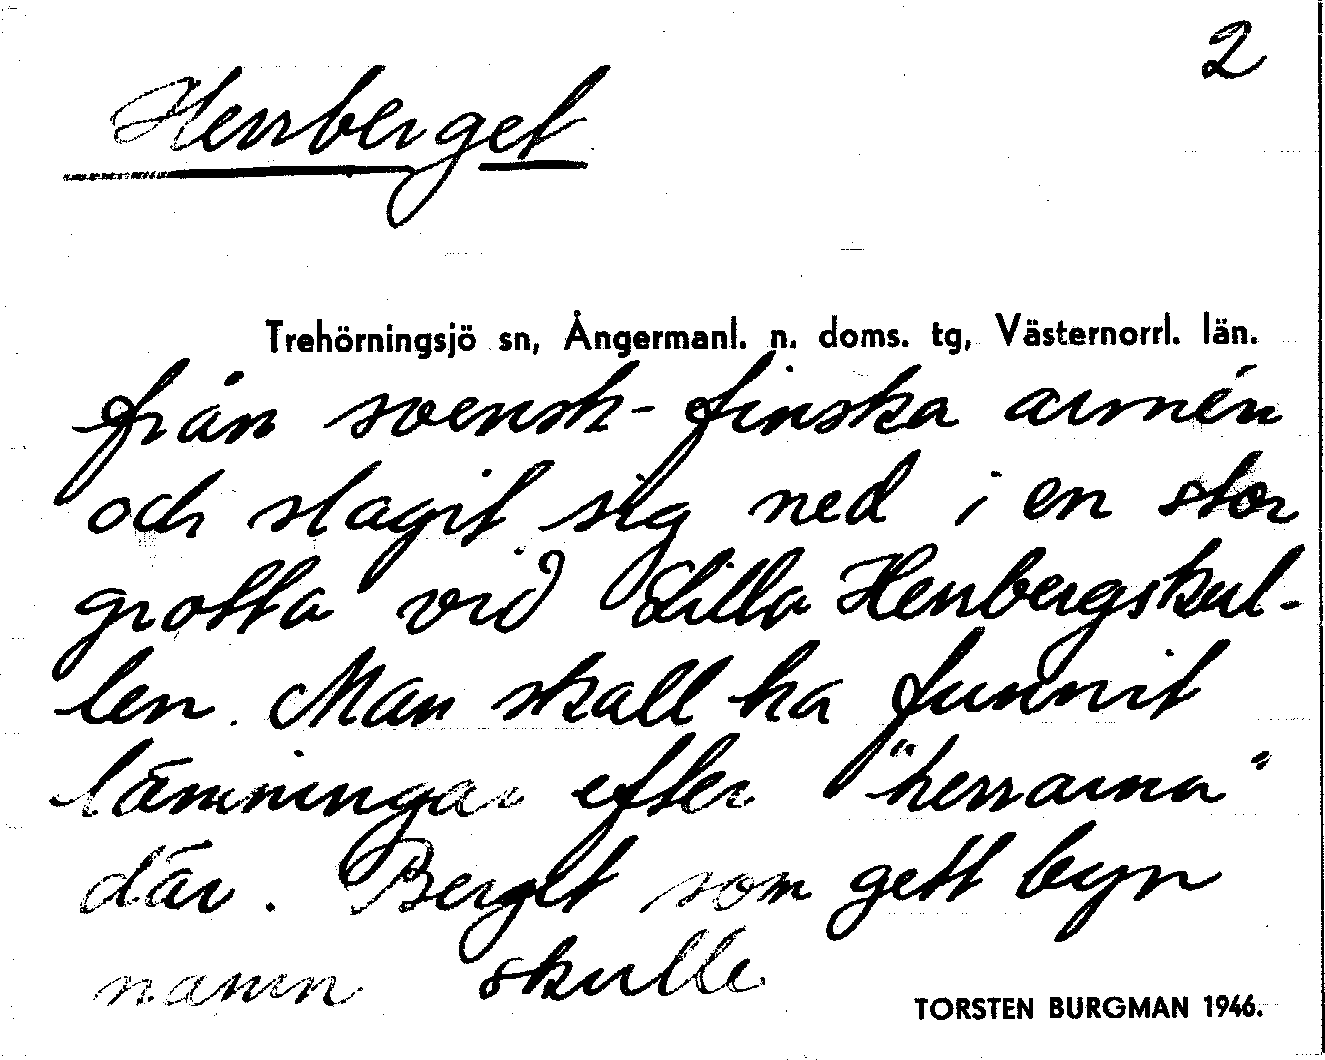 2
Herrberget
Trehörningsjö sn, Ångermanl. n. doms. tg, Västernorrl. län.
från svensk-finska armén
och slagit sig ned i en stor
grotta vid Lilla Herrbergskul-
len. Man skall ha funnit
lämningar efter "herrarna"
där. Berget som gett byn
namn skulle
TORSTEN BURGMAN 1946.